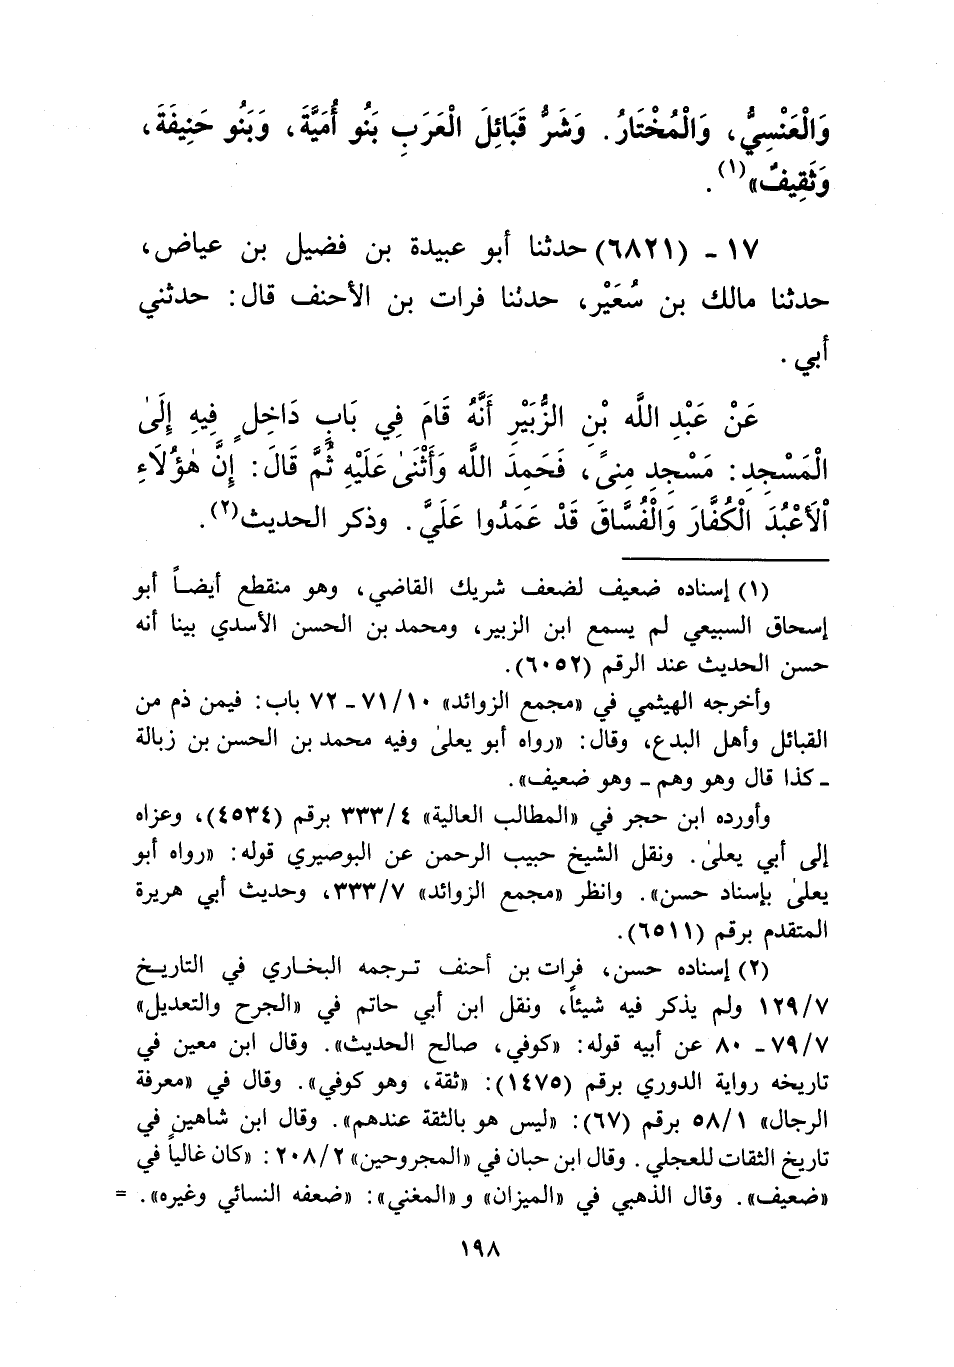 وَالْعَنْسِيُّ، وَالْمُخْتَارُ. وَشَرُّ قَبَائِلَ الْعَرَبِ بَنُو أُمَيَّةَ، وَبَنُو حَنِيفَةَ،
وَثَقِيفٌ»(١).
١٧ - (٦٨٢١) حدثنا أبو عبيدة بن فضيل بن عياض،
حدثنا مالك بن سُعَيْرٍ، حدثنا فرات بن الأحنف قال: حدثني
أبي.
عَنْ عَبْدِ اللَّه بْنِ الزُّبَيْرِ أَنَّهُ قَامَ فِي بَابٍ دَاخِلٍ فِيهِ إِلَىٰ
الْمَسْجِدِ: مَسْجِدِ مِنىً، فَحَمِدَ اللَّه وَأَثْنَىٰ عَلَيْهِ ثُمَّ قَالَ: إِنَّ هٰؤُلَاءِ
اْلأَعْبُدَ الْكُفَّارَ وَالْفُسَّاقَ قَدْ عَمَدُوا عَلَيَّ. وذكر الحديث(٢).
(١) إسناده ضعيف لضعف شريك القاضي، وهو منقطع أيضاً أبو
إسحاق السبيعي لم يسمع ابن الزبير، ومحمد بن الحسن الأسدي بينا أنه
حسن الحديث عند الرقم (٦٠٥٢).
وأخرجه الهيثمي في «مجمع الزوائد» ٧١/١٠ - ٧٢ باب: فيمن ذم من
القبائل وأهل البدع، وقال: «رواه أبو يعلىٰ وفيه محمد بن الحسن بن زبالة
- كذا قال وهو وهم - وهو ضعيف».
وأورده ابن حجر في «المطالب العالية» ٣٣٣/٤ برقم (٤٥٣٤)، وعزاه
إلى أبي يعلىٰ. ونقل الشيخ حبيب الرحمن عن البوصيري قوله: «رواه أبو
يعلىٰ بإسناد حسن». وانظر «مجمع الزوائد» ٣٣٣/٧، وحديث أبي هريرة
المتقدم برقم (٦٥١١).
(٢) إسناده حسن، فرات بن أحنف ترجمه البخاري في التاريخ
١٢٩/٧ ولم يذكر فيه شيئاً، ونقل ابن أبي حاتم في «الجرح والتعديل»
٧٩/٧ - ٨٠ عن أبيه قوله: «كوفي، صالح الحديث». وقال ابن معين في
تاريخه رواية الدوري برقم (١٤٧٥): «ثقة، وهو كوفي». وقال في «معرفة
الرجال» ٥٨/١ برقم (٦٧): «ليس هو بالثقة عندهم». وقال ابن شاهين في
تاريخ الثقات للعجلي. وقال ابن حبان في «المجروحين» ٢٠٨/٢: «كان غالياً في
«ضعيف». وقال الذهبي في «الميزان» و «المغني»: «ضعفه النسائي وغيره». =
١٩٨